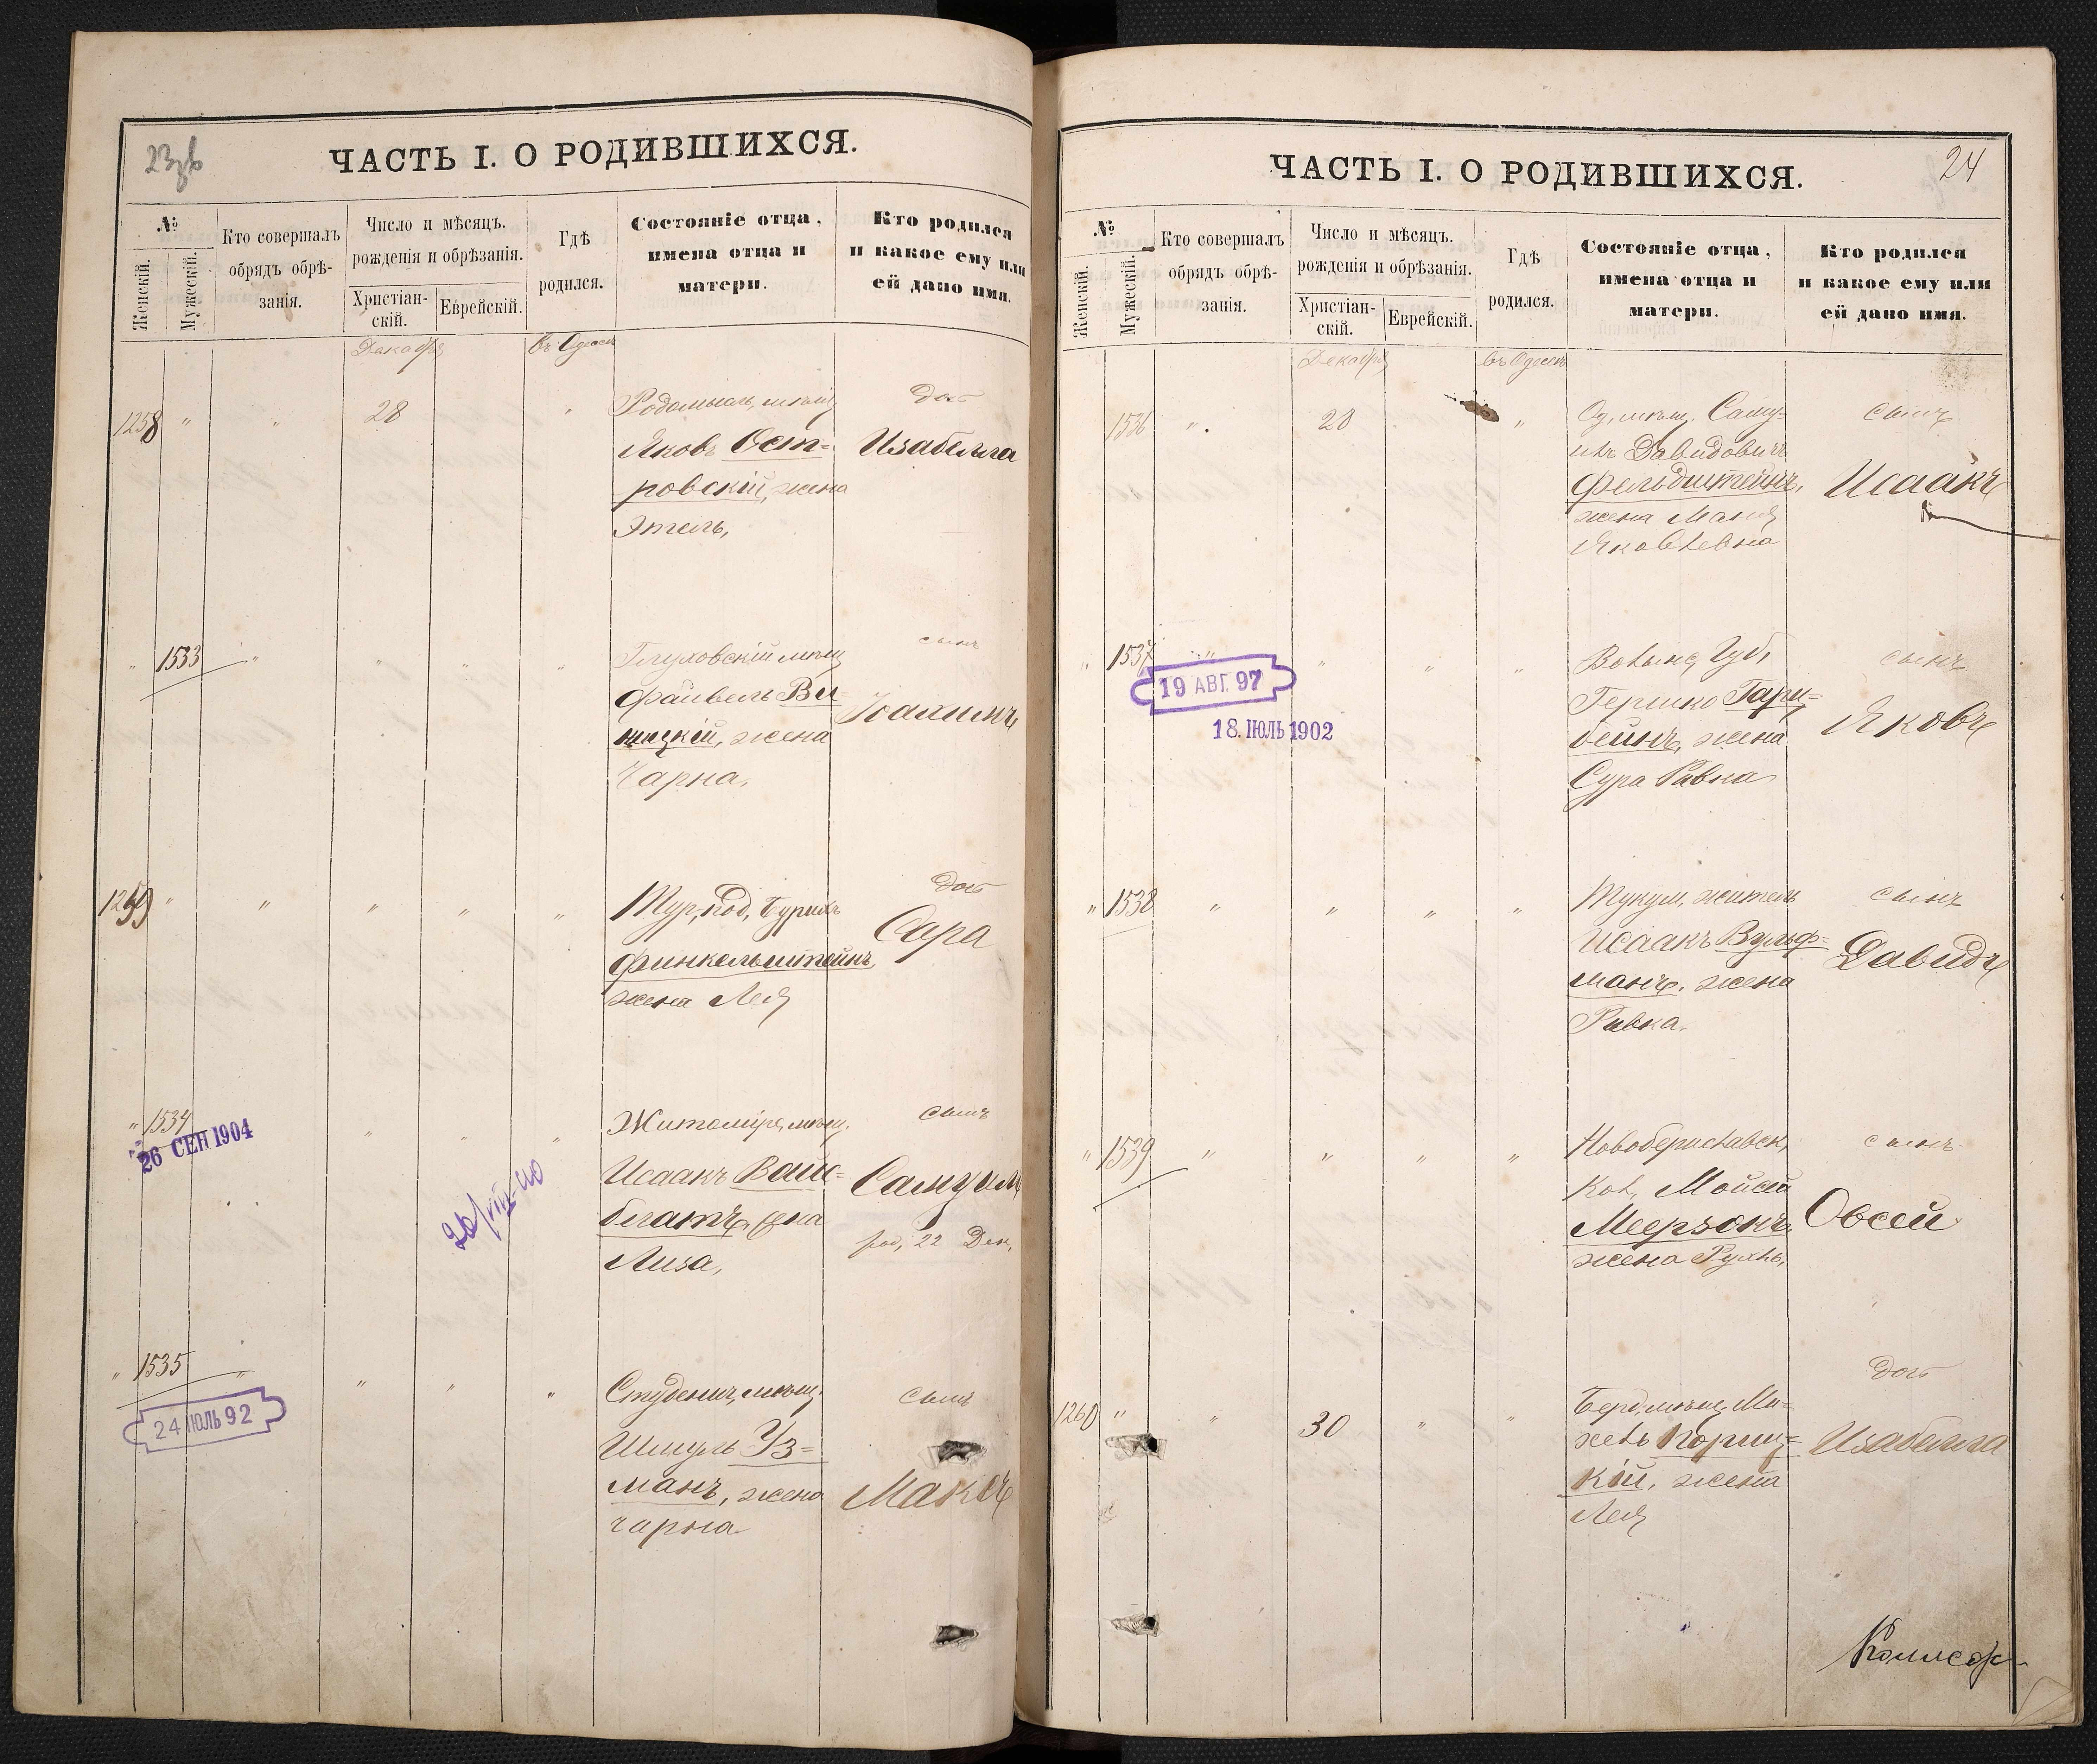 ЧАСТЬ I. О РОДИВШИХСЯ.
№
Женскій.
Мужескій.
Кто совершалъ
обрядъ обрѣ-
занія.
Число и мѣсяцъ.
рожденія и обрѣзанія.
Христіан-
скій.
Еврейскій.
Гдѣ
родился.
Состояніе отца,
имена отца и
матери.
Кто родился
и какое ему или
ей дано имя.
Декабря
въ Одессѣ
1258 " " 28 "
Родомысл, мѣщ
Яковъ Ост-
ровскій, жена
Этель,
доч
Изабелла
" 1533 " " " "
Глуховскій мѣщ
Файвель Ви-
ницкій, жена
Чарна,
сынъ
Іоахимъ
1259 " " " " "
Тур, под, Бурихъ
Финкельштейнъ
жена Лея
доч
Сара
" 1534 " " "
26 СЕН 1904
26/VIII-40
Житомірс, мѣщ.
Исаакъ Вайс-
бегатъ, жна
Лиза,
сынъ
Самуил
род, 22 Дек,
" 1535 " " " "
24 ИЮЛЬ 92
Студениц, мѣщ.
Шмуль Уз-
манъ, жена
Чарна
сынъ
Максъ
24
ЧАСТЬ I. О РОДИВШИХСЯ.
№
Женскій.
Мужескій.
Кто совершалъ
обрядъ обрѣ-
занія.
Число и мѣсяцъ.
рожденія и обрѣзанія.
Христіан-
скій.
Еврейскій.
Гдѣ
родился.
Состояніе отца,
имена отца и
матери.
Кто родился
и какое ему или
ей дано имя.
Декабря
въ Одессѣ
1536 " 28 "
Од, мѣщ. Саму-
илъ Давидовичъ
Фельдштейнъ,
жена Маня
Яковлевна
сынъ
Исаакъ
" 1537 " " " "
19 АВГ. 97
18. ІЮЛЬ 1902
Волынс, Губ,
Гершко Гарц-
бейнъ, жена
Сура Ривка
сынъ
Яковъ
" 1538 " " " "
Тукум, житель
Исаакъ Вульф-
манъ, жена
Ривка.
сынъ
Давидъ
" 1539 " " " "
Новобериславск,
Кол, Мойсей
Меерзонъ,
жена Рухль,
сынъ
Овсей
1260 " " 30 " "
Берд, мѣщ, Ми-
хель Кориц-
кій, жена
Лея
доч
Изабелла